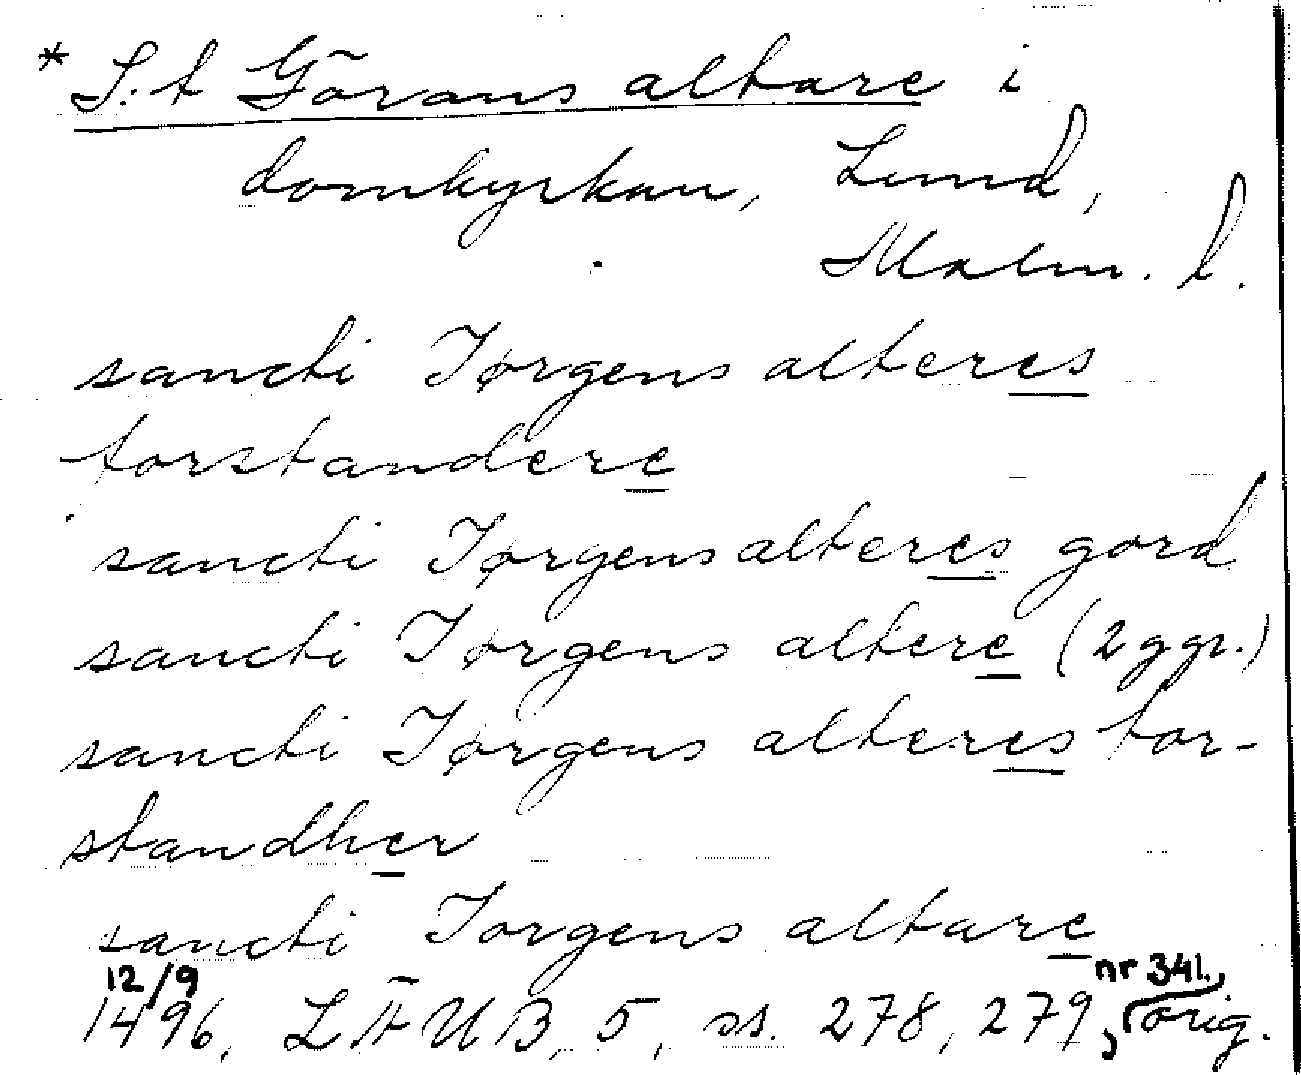 * S:t Görans altare i
domkyrkan, Lund,
Malm. l.
sancti Jørgens alteres
forstandere
sancti Jørgens alteres gord
sancti Jørgens altere (2 ggr.)
sancti Jørgens alteres for-
standher
sancti Jorgens altare
12/9 nr 341,
1496, LÄUB, 5, ss. 278, 279, orig.